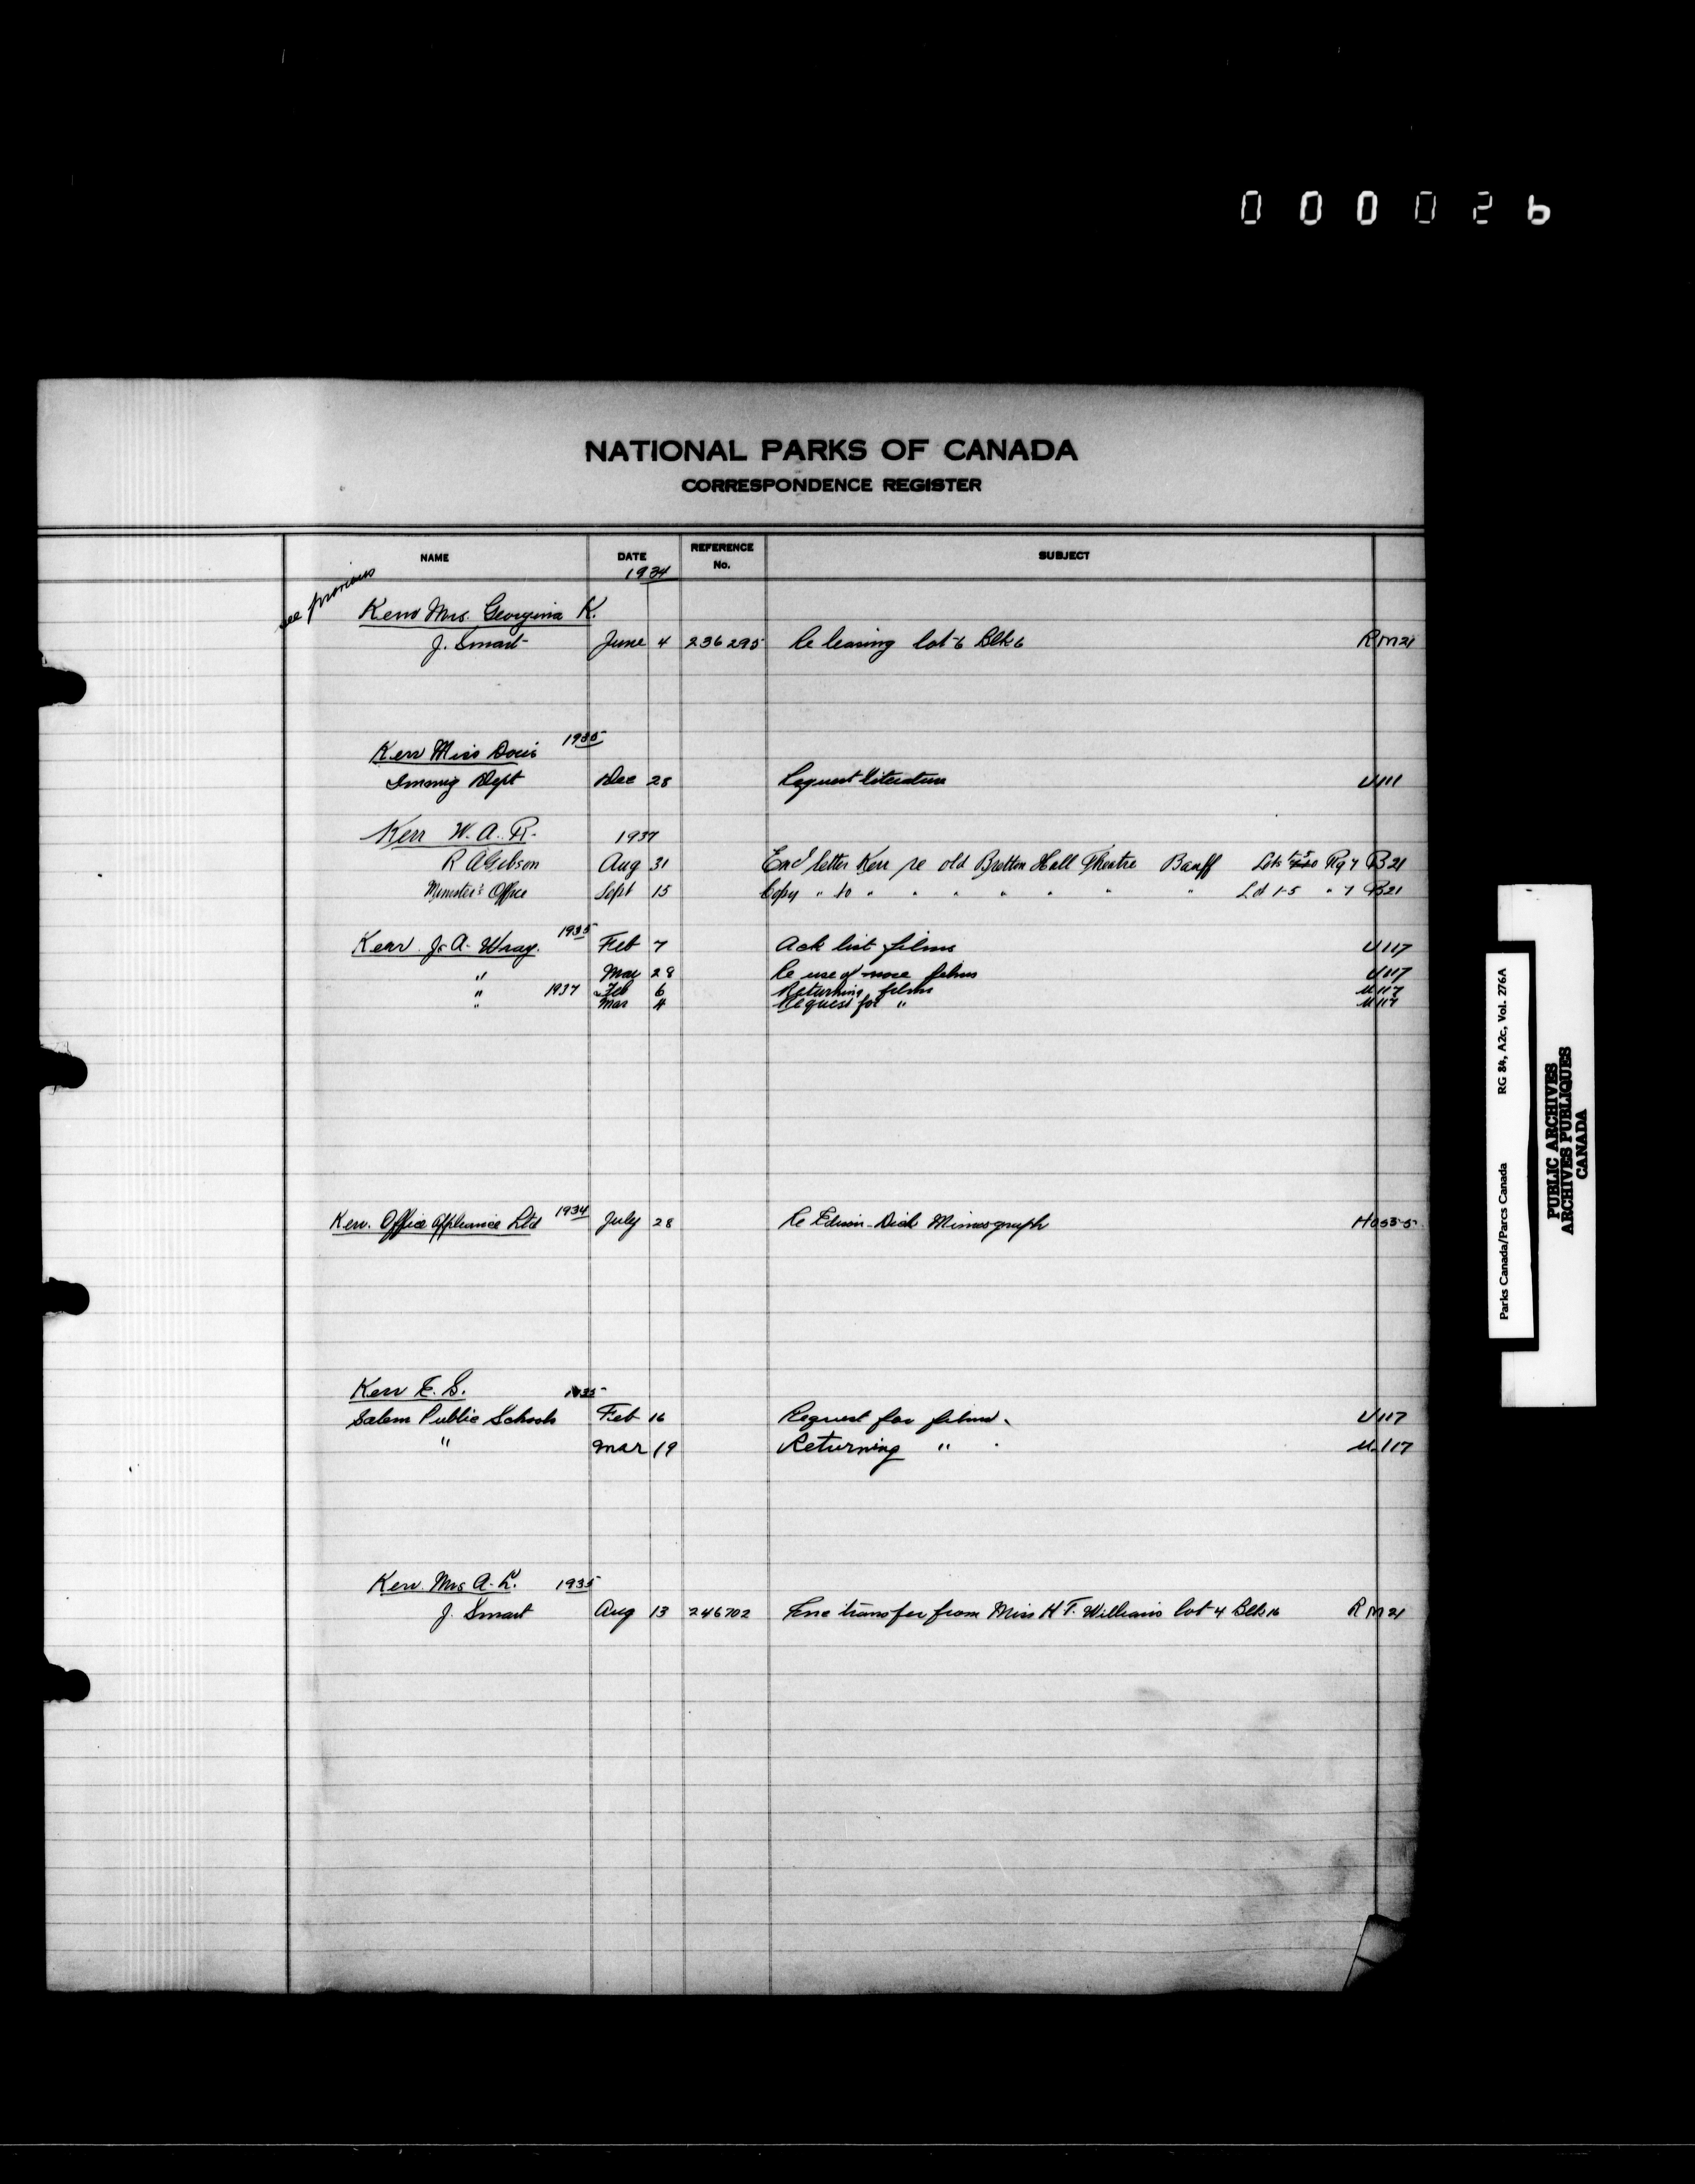 000026
NATIONAL PARKS OF CANADA
CORRESPONDENCE REGISTER
NAME DATE REFERENCE No. SUBJECT
1934
see previous
Kerr Mrs. Georgina K.
J. Smart June 4 236295 Re leasing lot 6 Blk 6 RM21
Kerr Miss Doris 1935
Immig Dept Dec 28 Request literature U111
Kerr W. A. R. 1937
R A Gibson Aug 31 Encl letter Kerr re old Bretton Hall Theatre Banff Lots 1-5 Rg 7 B21
Minister's Office Sept 15 Copy " to " " " " " " " Lot 1-5 " 7 B21
Kerr J. A. Wray. 1935 Feb 7 Ack list films U117
" May 28 Re use of more films U117
" 1937 Feb 6 Returning films U117
" Mar 4 Request for " U117
Kerr. Office Appliance Ltd 1934 July 28 Re Edison-Dick Mimeograph H053-5
Kerr E. S. 1935
Salem Public Schools Feb 16 Request for films. U117
" Mar 19 Returning " . U.117
Kerr. Mrs A. L. 1935
J. Smart Aug 13 246702 transfer from Miss H T. Williams lot 4 Blk 16 RM21
Parks Canada/Parcs Canada RG 84, A2c, Vol. 276A
PUBLIC ARCHIVES
ARCHIVES PUBLIQUES
CANADA